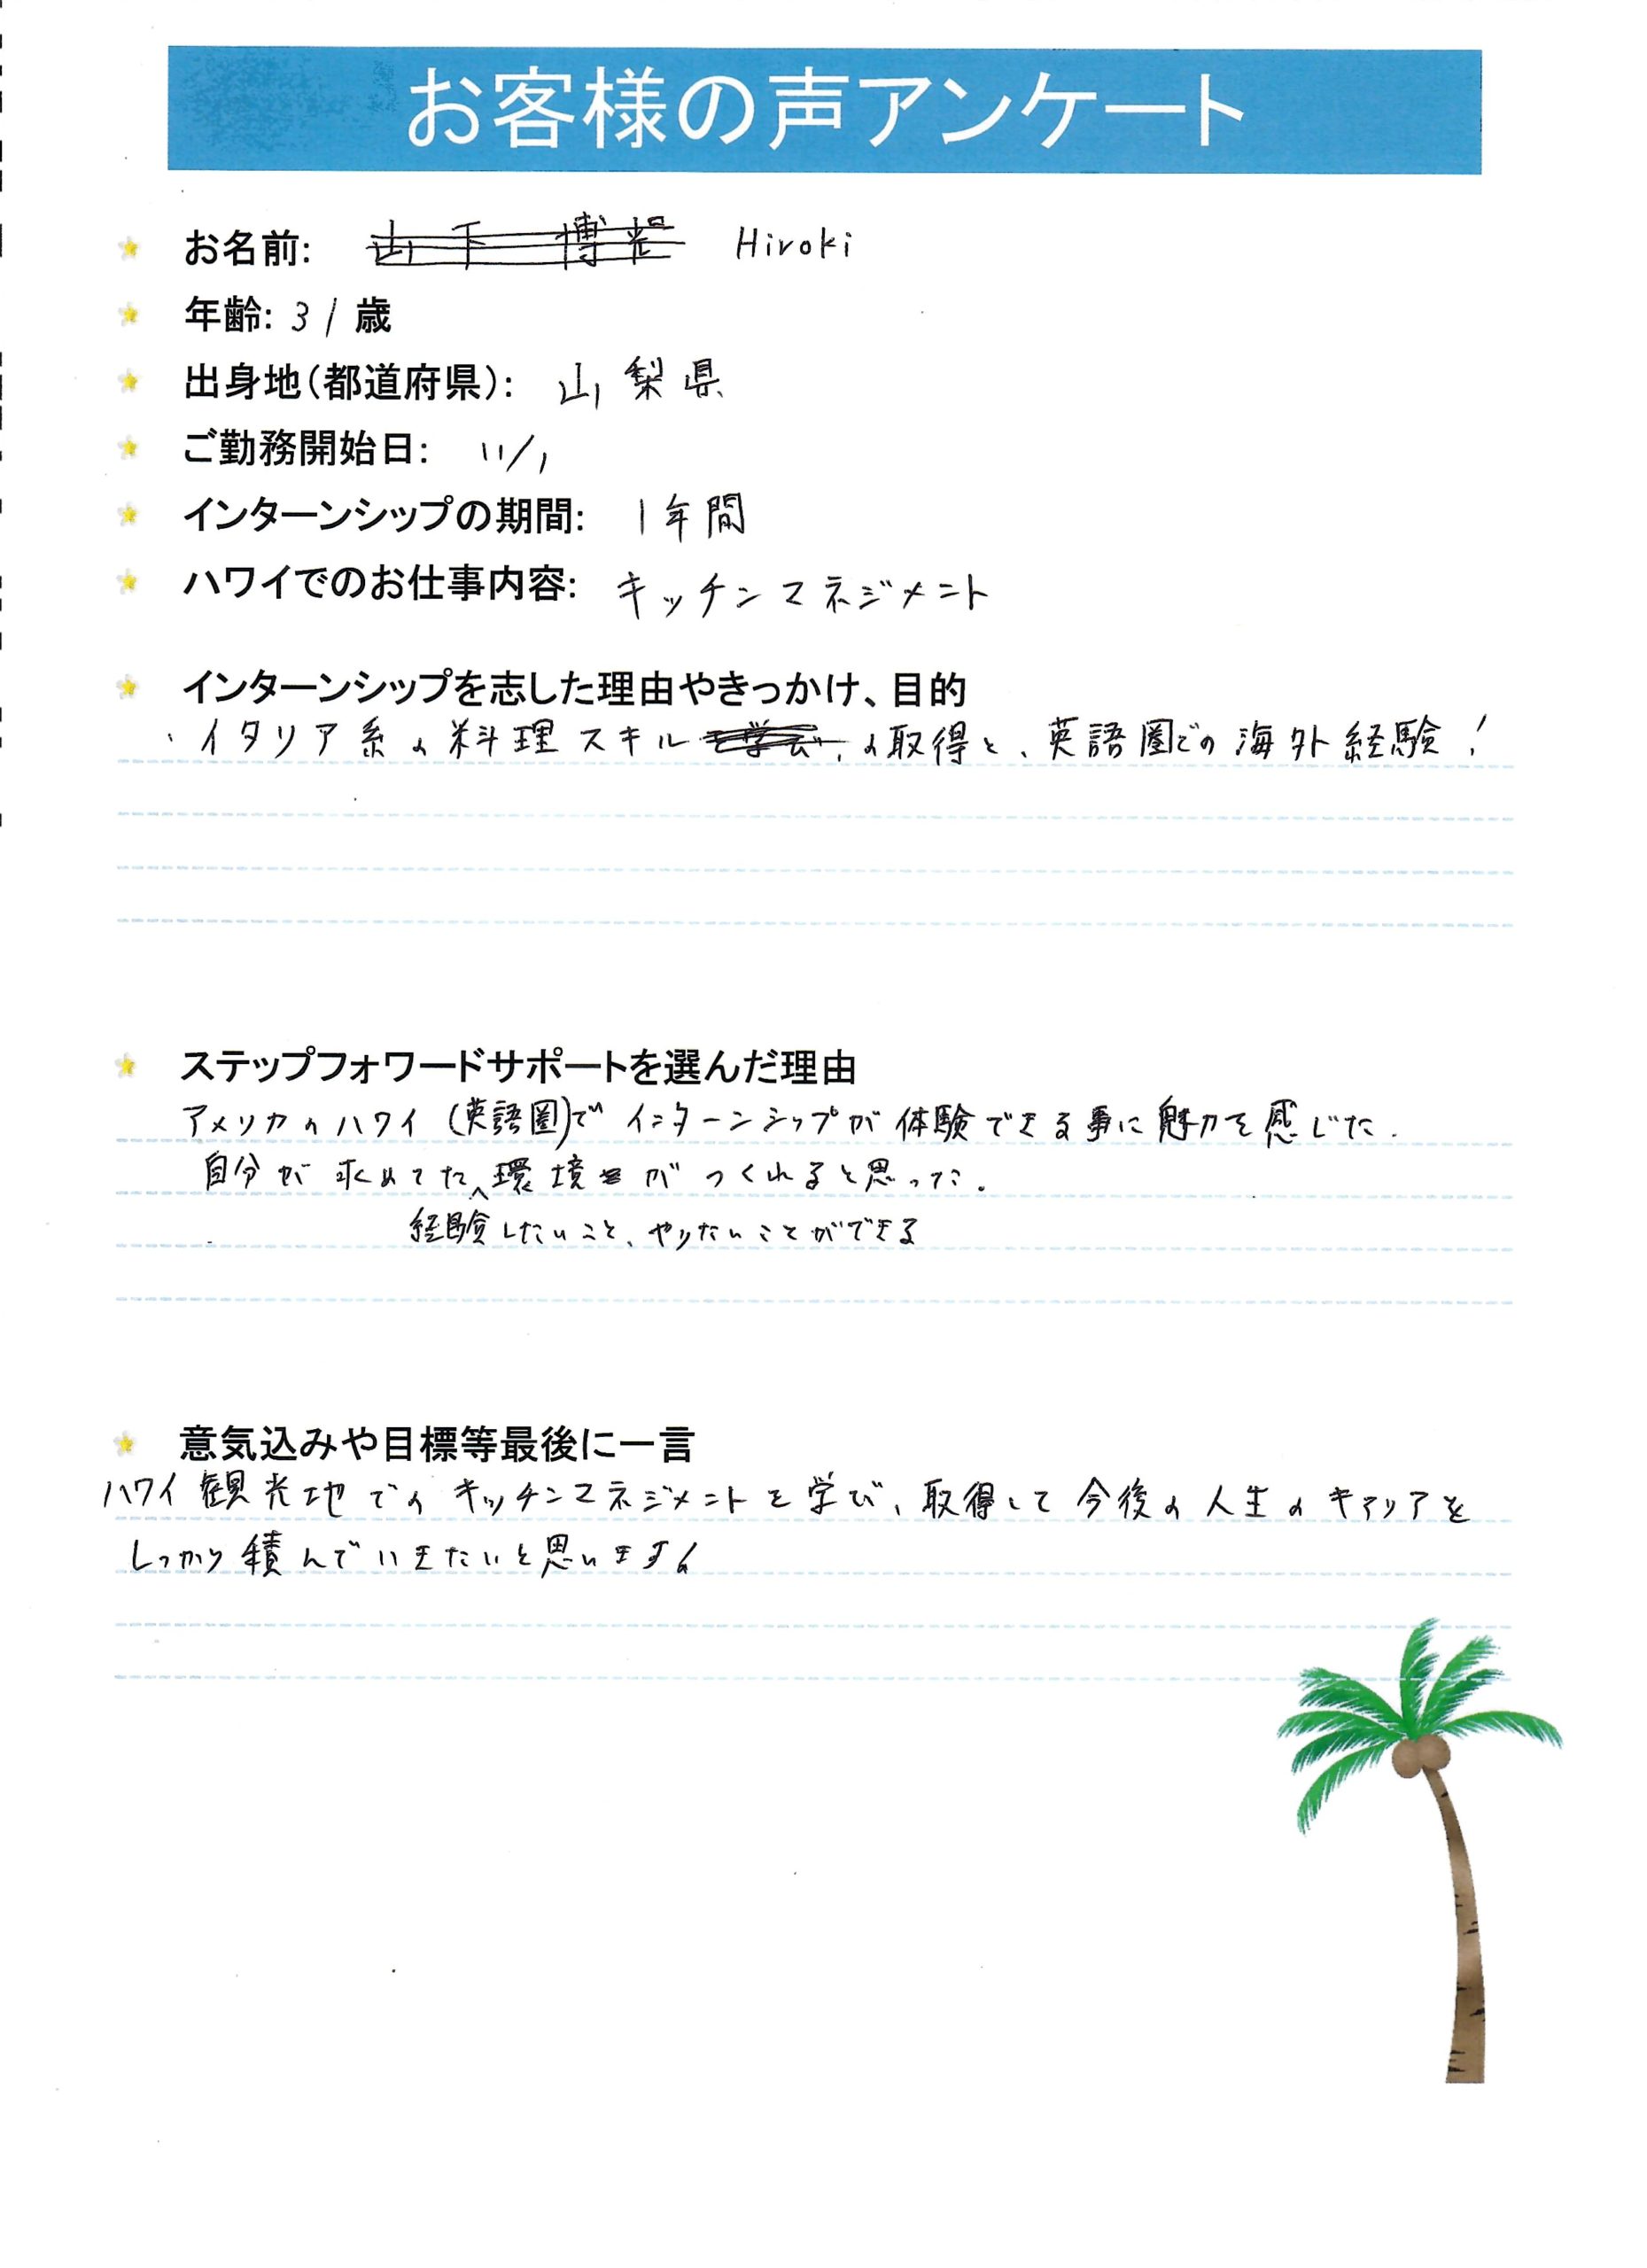 お客様の声アンケート
お名前: Hiroki
年齢: 31歳
出身地(都道府県): 山梨県
ご勤務開始日: 11/1
インターンシップの期間: 1年間
ハワイでのお仕事内容: キッチンマネジメント
インターンシップを志した理由やきっかけ、目的
・イタリア系の料理スキルの取得と、英語圏での海外経験!
ステップフォワードサポートを選んだ理由
アメリカのハワイ(英語圏)でインターンシップが体験できる事に魅力を感じた.
自分が求めてた環境がつくれると思った.
経験したいこと、やりたいことができる
意気込みや目標等最後に一言
ハワイ観光地でのキッチンマネジメントを学び、取得して今後の人生のキャリアを
しっかり積んでいきたいと思います!